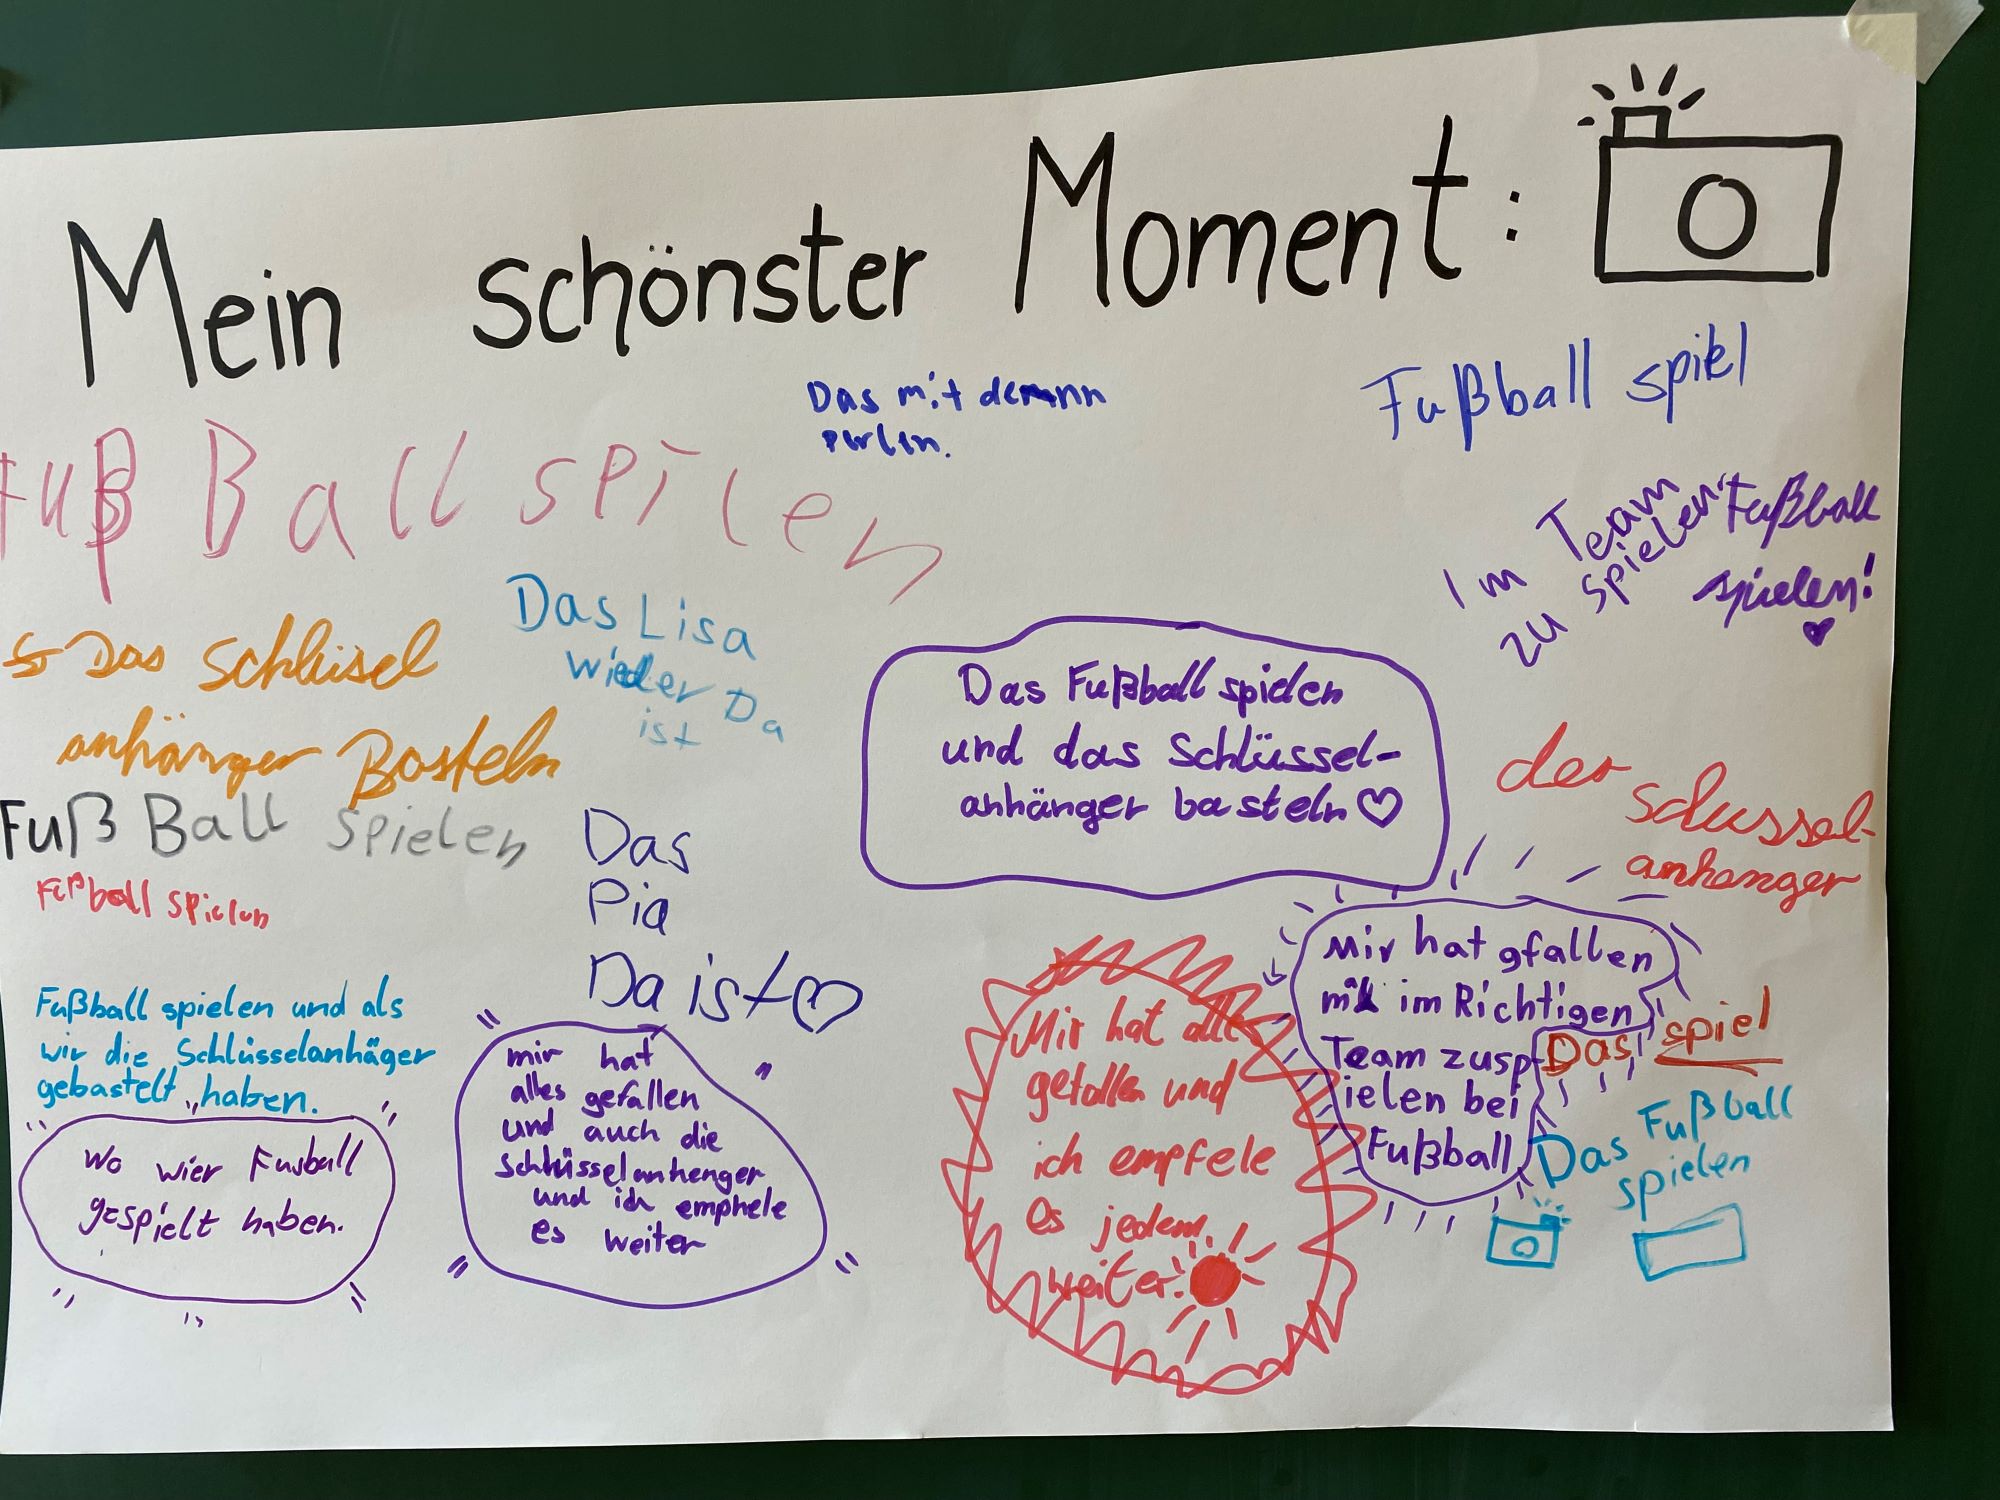 Mein schönster Moment:
Das mit demann
perlen.
Fußball spiel
Fuß Ball spilen
Im Team
zu spielen
Fußball
spielen!
Das Lisa
wieder Da
ist
Das Schlüsel
anhänger Basteln
Das Fußball spielen
und das Schlüssel-
anhänger basteln
der
schussel-
anhanger
Fuß Ball spielen
Fußball spielen
Das
Pia
Da ist
Fußball spielen und als
wir die Schlüsselanhäger
gebastelt haben.
wo wier Fusball
gespielt haben.
mir hat
alles gefallen
und auch die
schlüsselanhenger
und ich emphele
es weiter
Mir hat alle
gefallen und
ich empfele
es jedem
weiter.
Mir hat gfallen
im Richtigen
Team zusp
ielen bei
Fußball
Das spiel
Das Fußball
spielen